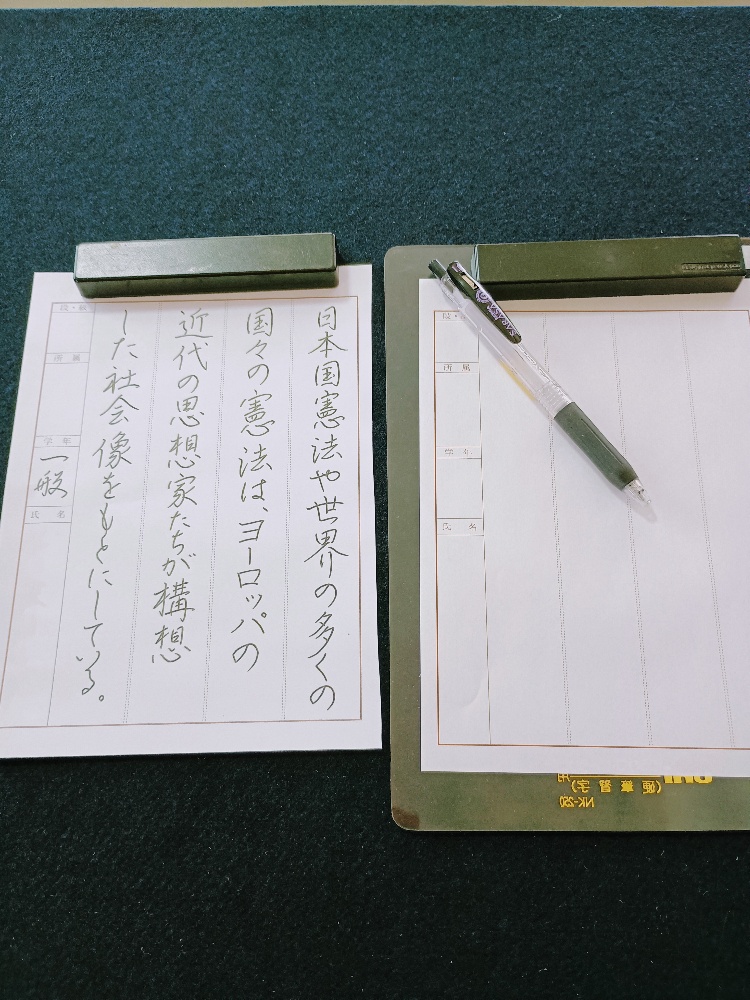 日本国憲法や世界の多くの
国々の憲法は、ヨーロッパの
近代の思想家たちが構想
した社会像をもとにしている。
段・級
所属
学年
一般
氏名
段・
所属
学年
氏名
SARASA
(硬筆習字)用
NK-250